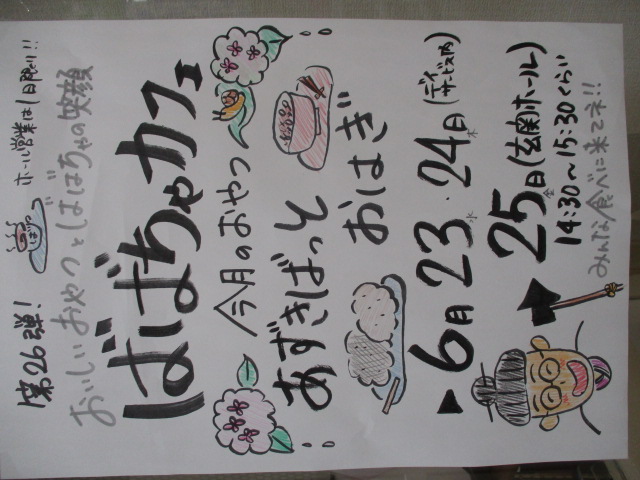 第26弾!
ホール営業は1日限り!!
おいしいおやつとばばちゃの笑顔
ばばちゃカフェ
今月のおやつ
あずきばっと
おはぎ
6月23水・24木日(デイサービス内)
25金日(玄関ホール)
14:30〜15:30くらい
みんな食べに来てネ!!